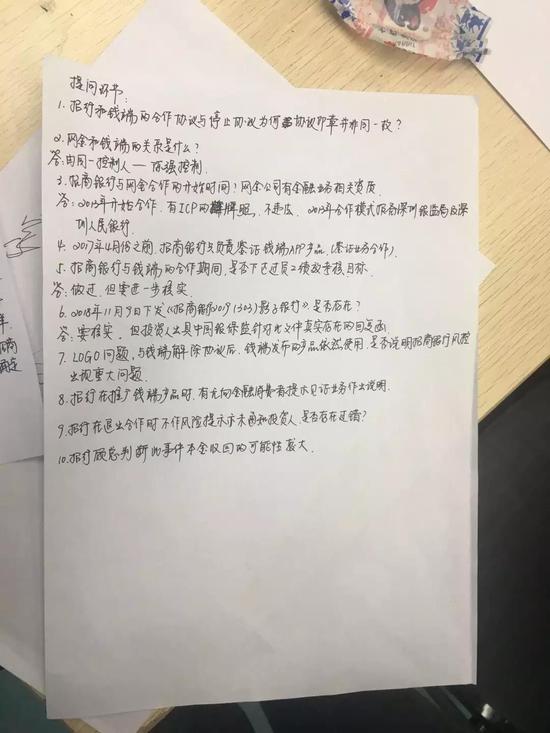 提问环节:
1. 招行和钱端的合作协议与停止协议为何协议印章并非同一枚?
2. 网金和钱端的关系是什么?
答: 由同一控制人— 陈强控制.
3. 招商银行与网金合作的开始时间? 网金公司有金融业务相关资质.
答: 2013年开始合作. 有ICP的牌照, 不违反. 2013年合作模式报备深圳银监局及深
圳人民银行.
4. 2017年4月份之前, 招商银行负责鉴证钱端APP产品 (鉴证业务合作).
5. 招商银行与钱端的合作期间, 是否下达过员工绩效考核目标.
答: 做过, 但要进一步核实
6. 2018年11月9日下发《招商银行2009 (303) 影子银行》是否存在?
答: 要核实. 但投资人出具中国银保监针对此文件真实存在的回复函
7. LOGO问题, 与钱端解除协议后, 钱端发布的产品依然使用, 是否说明招商银行风控
出现重大问题.
8. 招行在推广钱端产品时, 有无向金融消费者提示见证业务作出说明.
9. 招行在退出合作时不作风险提示亦未通知投资人, 是否存在过错?
10. 招行顾总判断此事件本金收回的可能性蛮大.